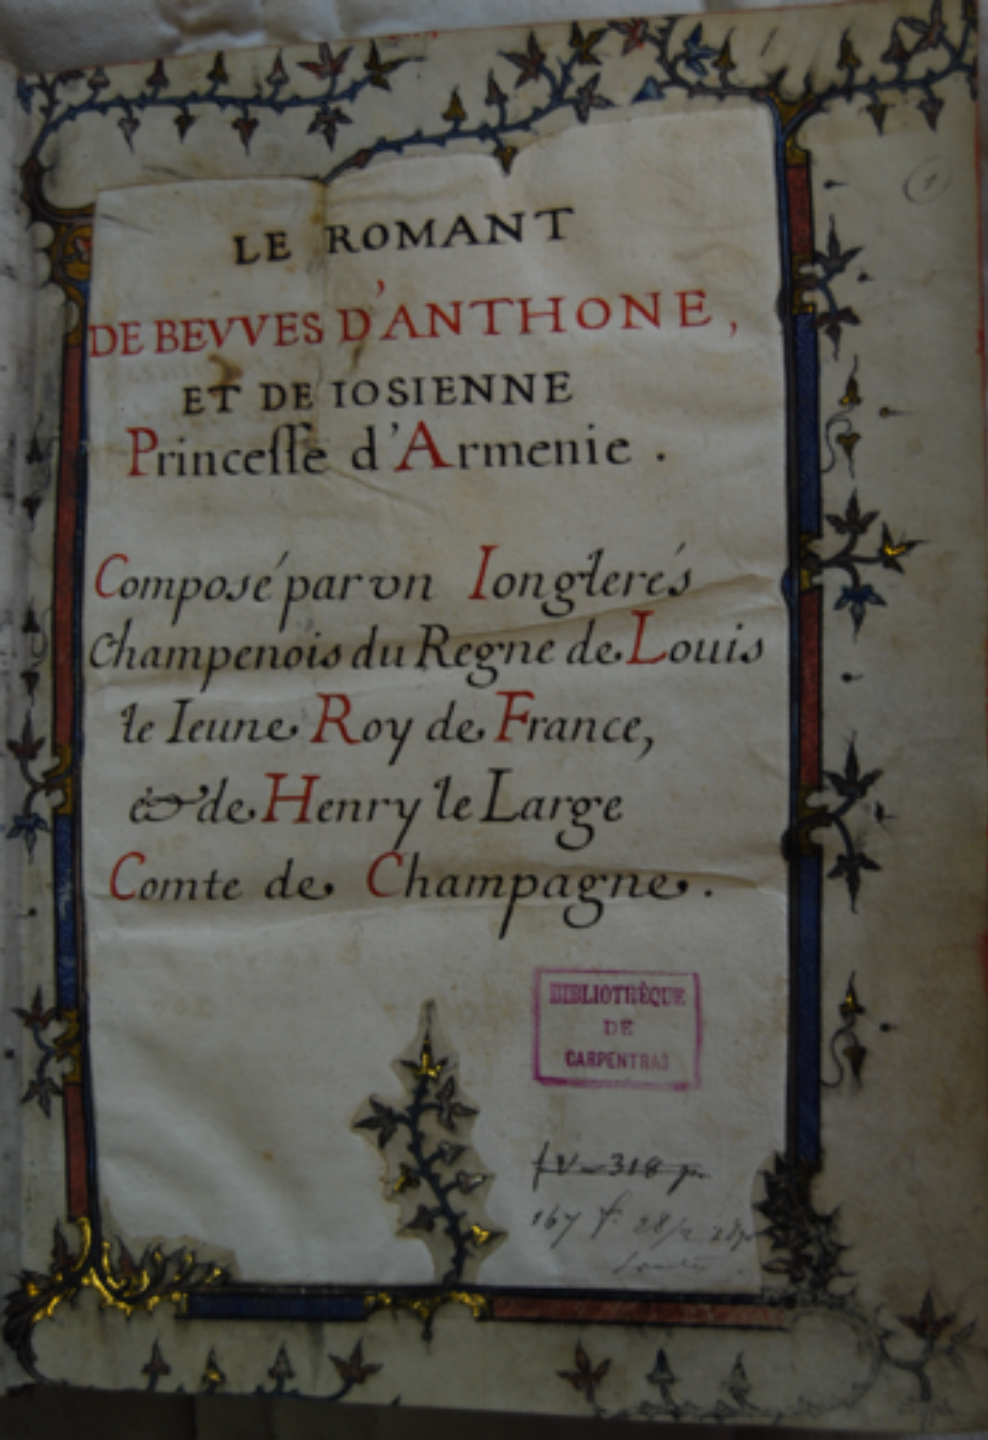 LE ROMANT
DE BEVVES D'ANTHONE,
ET DE IOSIENNE
Princesse d'Armenie .
Composé par vn Iongleres
Champenois du Regne de Louis
le Ieune Roy de France,
& de Henry le Large
Comte de Champagne .
BIBLIOTHÈQUE
DE
CARPENTRAS
318 p.
167 f. 28/2